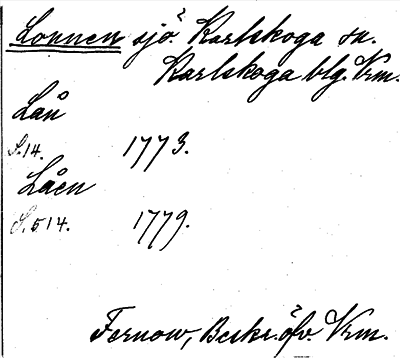 Lonnen sjö? Karlskoga sn.
Karlskoga blg. Vrm.
Lån
S.14. 1773.
Låen
S.514. 1779.
Fernow, Beskr. öfv. Vrm.